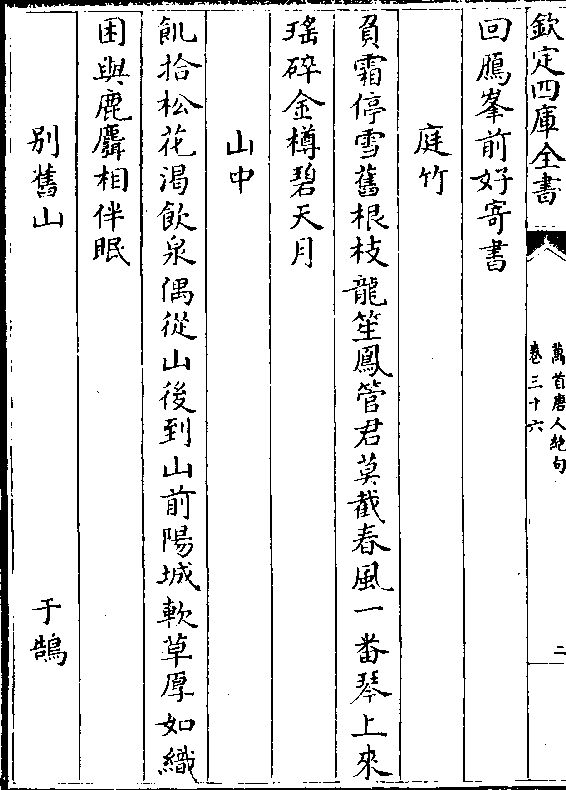 欽定四庫全書
萬首唐人絶句
卷三十六
二
回鴈峯前好寄書
庭竹
負霜停雪舊根枝龍笙鳳管君莫截春風一番琴上來
瑶碎金樽碧天月
山中
飢拾松花渴飲泉偶從山後到山前陽城軟草厚如織
困與鹿麛相伴眠
別舊山 于鵠